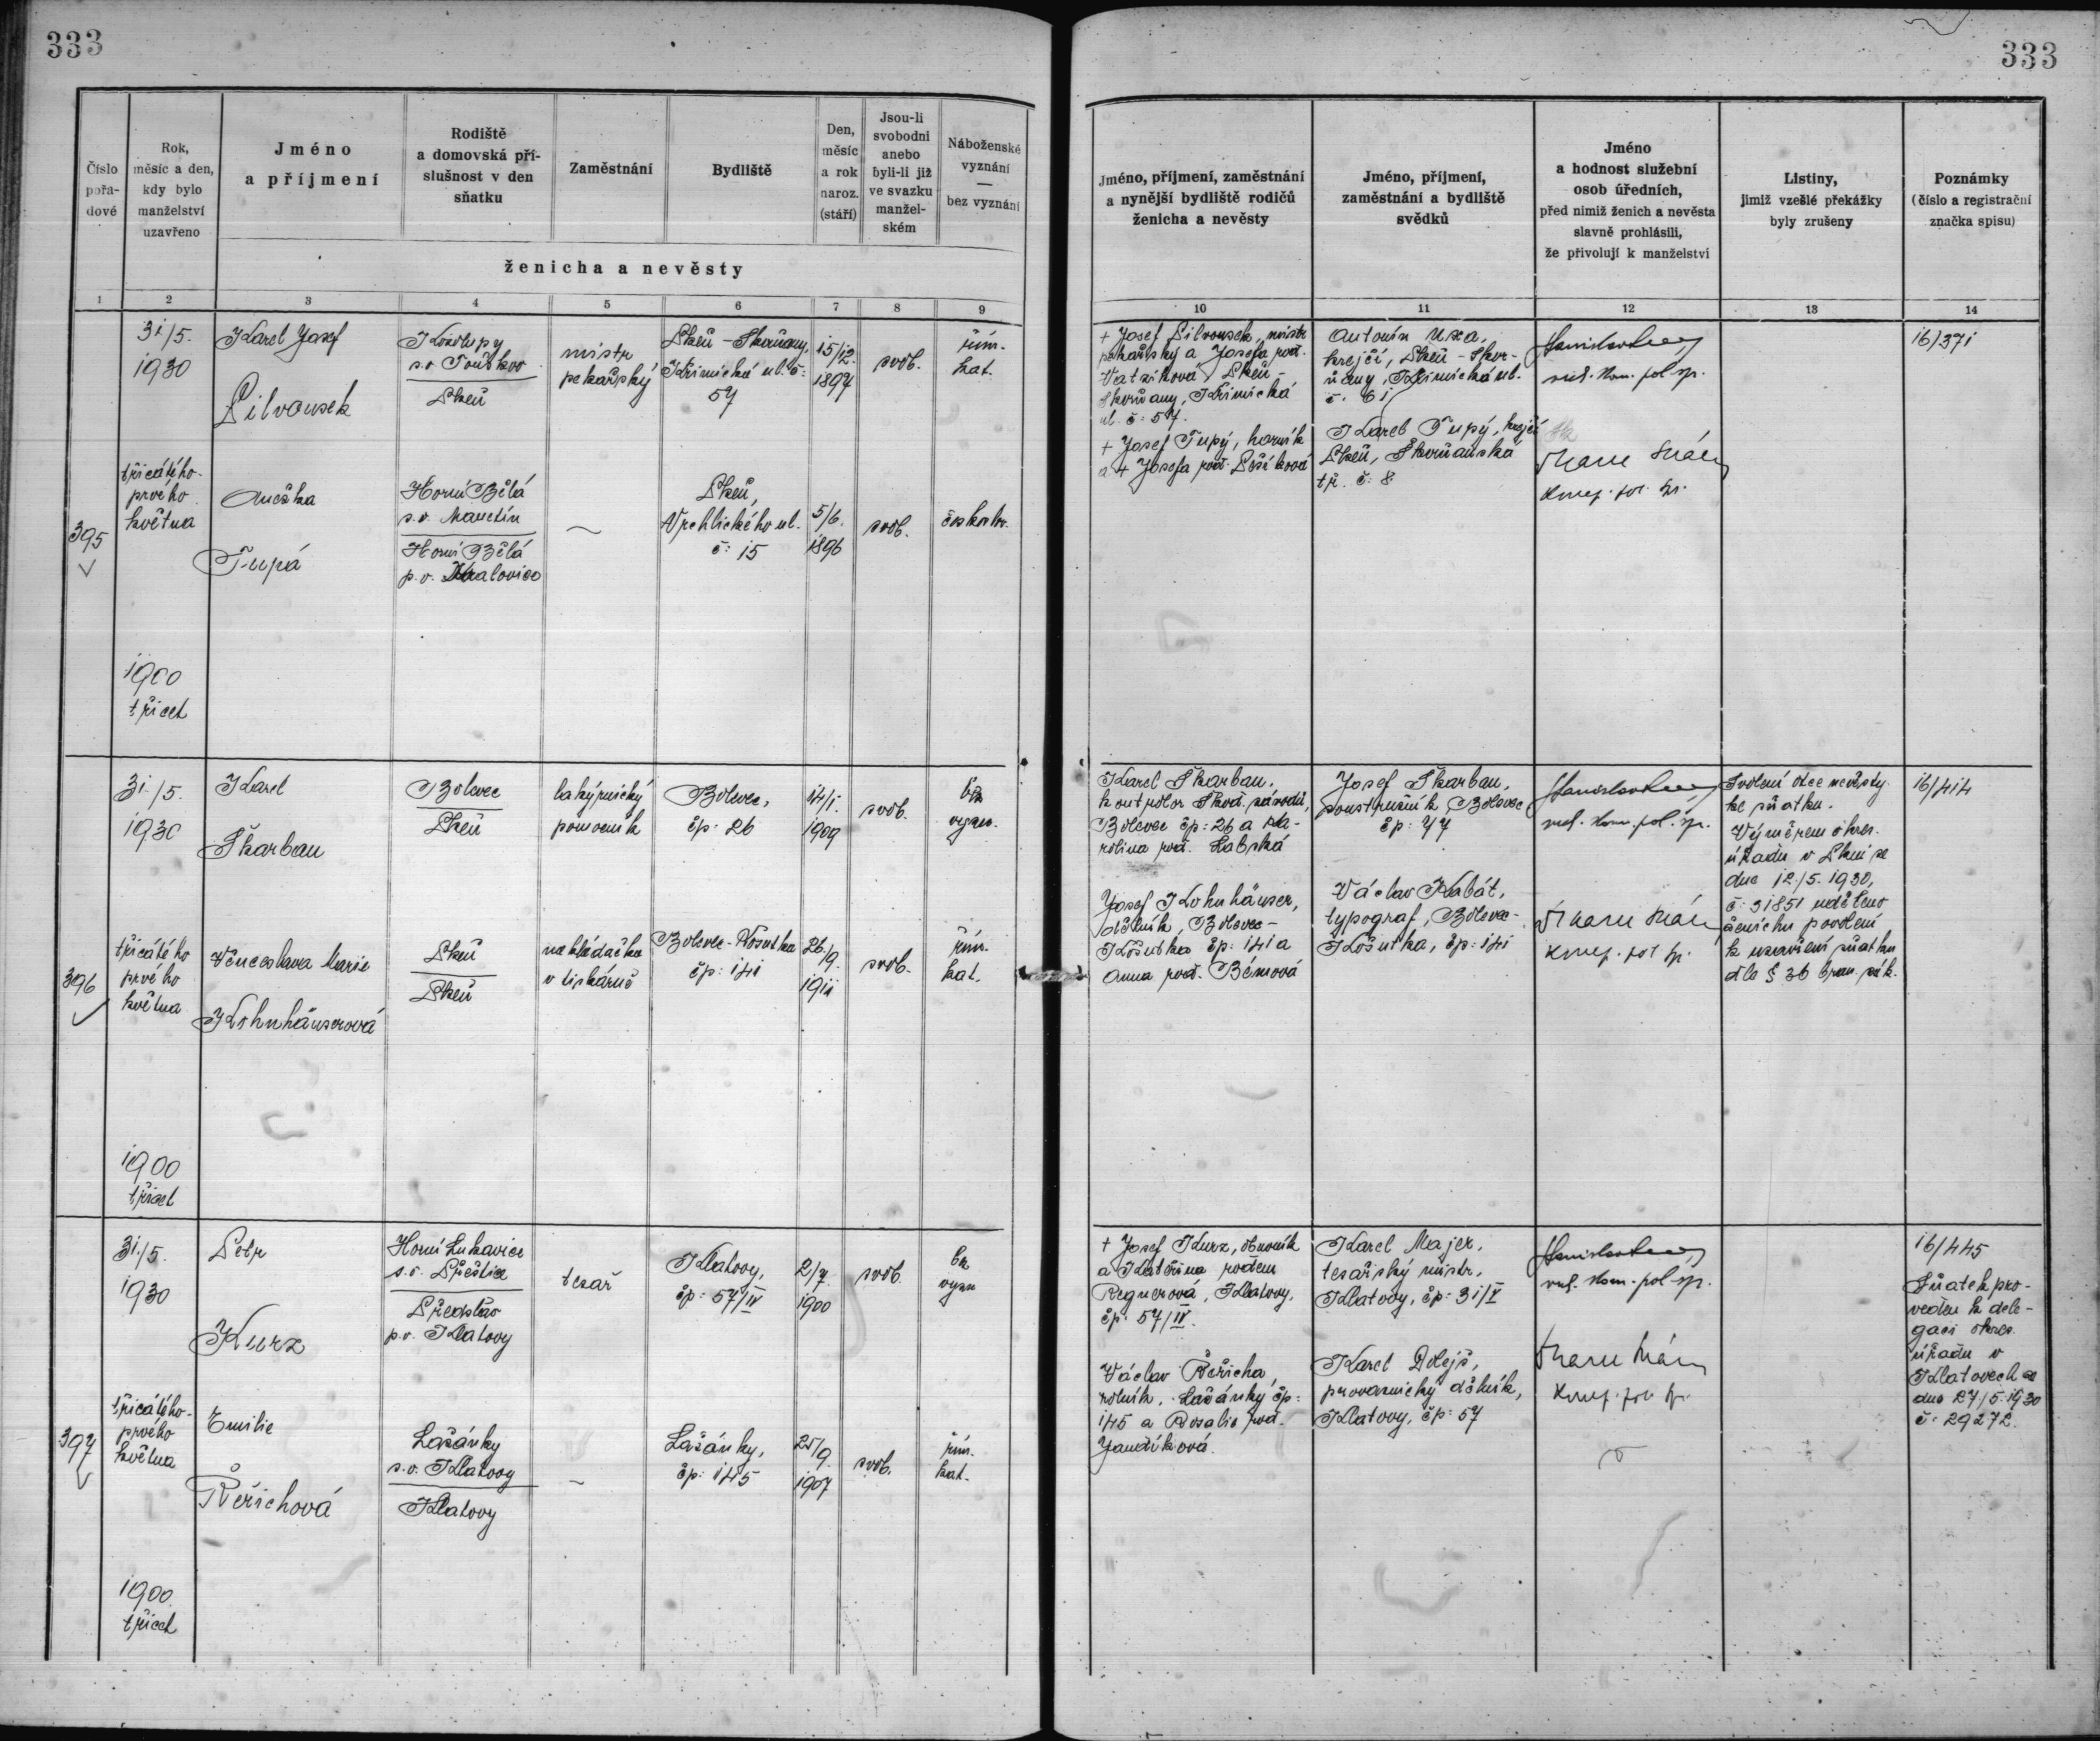 333
333
Číslo pořa-dové
Rok, měsíc a den, kdy bylo manželství uzavřeno
Jméno a příjmení
Rodiště a domovská pří-slušnost v den sňatku
Zaměstnání
Bydliště
Den, měsíc a rok naroz. (stáří)
Jsou-li svobodni anebo byli-li již ve svazku manžel-ském
Náboženské vyznání — bez vyznání
ženicha a nevěsty
Jméno, příjmení, zaměstnání a nynější bydliště rodičů ženicha a nevěsty
Jméno, příjmení, zaměstnání a bydliště svědků
Jméno a hodnost služební osob úředních, před nimiž ženich a nevěsta slavně prohlásili, že přivolují k manželství
Listiny, jimiž vzešlé překážky byly zrušeny
Poznámky (číslo a registrační značka spisu)
1 2 3 4 5 6 7 8 9 10 11 12 13 14
395
31./5.
1930
třicátého-
prvého
května
1900
třicet
Karel Josef
Silvousek
Kozolupy
s.o. Touškov
Plzeň
mistr
pekařský
Plzeň - Skvrňany,
Křimická ul. č:
57
15/12.
1897
svob.
řím.
kat.
Anežka
Tupá
Horní Bělá
s.o. Manětín
Horní Bělá
p.o. Kralovice
Plzeň,
Vrchlického ul.
č: 15
5/6.
1896
svob.
českosl.
+ Josef Silvousek, mistr
pekařský a Josefa roz.
Plzeň -
Skvrňany, Křimická
ul. č: 57.
+ Josef Tupý, horník
a + Josefa roz.
Antonín
krejčí, Plzeň - Skvr-
ňany, Křimická ul.
č. 61
Karel Tupý, krejčí
Plzeň, Skvrňanská
tř. č: 8
16/371
396
31./5.
1930
třicátého
prvého
května
1900
třicet
Karel
Škarban
Bolevec
Plzeň
lakýrnický
pomocník
Bolevec,
čp: 26
14/1.
1909
svob.
bez
vyzn.
Věnceslava Marie
Kohnhäuserová
Plzeň
Plzeň
nakládačka
v tiskárně
Bolevec - Košutka
čp: 141
26/9.
1911
svob.
řím.
kat.
Karel Škarban,
kontrolor Škod. závodů,
Bolevec čp: 26 a Ka-
rolina roz. Labská
Josef Kohnhäuser,
dělník, Bolevec -
Košutka čp: 141 a
Anna roz. Bémová
Josef Škarban,
soustružník, Bolevec
čp: 47
Václav Kabát,
typograf, Bolevec -
Košutka, čp: 141
Svolení otce nevěsty
ke sňatku.
Výměrem okres.
úřadu v Plzni ze
dne 12./5. 1930,
č: 31851 uděleno
ženichu povolení
k uzavření sňatku
dle § 36 bran. zák.
16/414
397
31./5.
1930
třicátého-
prvého
května
1900
třicet
Petr
Kurz
Horní Lukavice
s.o. Přeštice
Předslav
p.o. Klatovy
tesař
Klatovy,
čp: 57/IV
2/7.
1900
svob.
bez
vyzn
Emilie
Řeřichová
Lažánky
s.o. Klatovy
Klatovy
Lažánky,
čp: 145
25/9.
1907
svob.
řím.
kat.
+ Josef Kurz, obuvník
a Kateřina rozen.
Regnerová, Klatovy,
čp. 57/IV.
Václav Řeřicha,
rolník, Lažánky čp:
145 a Rosalie roz.
Jandíková.
Karel Majer,
tesařský mistr,
Klatovy, čp: 31/V
Karel Dolejš,
provaznický dělník,
Klatovy, čp: 57
16/445
Sňatek pro-
veden k dele-
gaci okres.
úřadu v
Klatovech ze
dne 27/5. 1930
č: 29272.